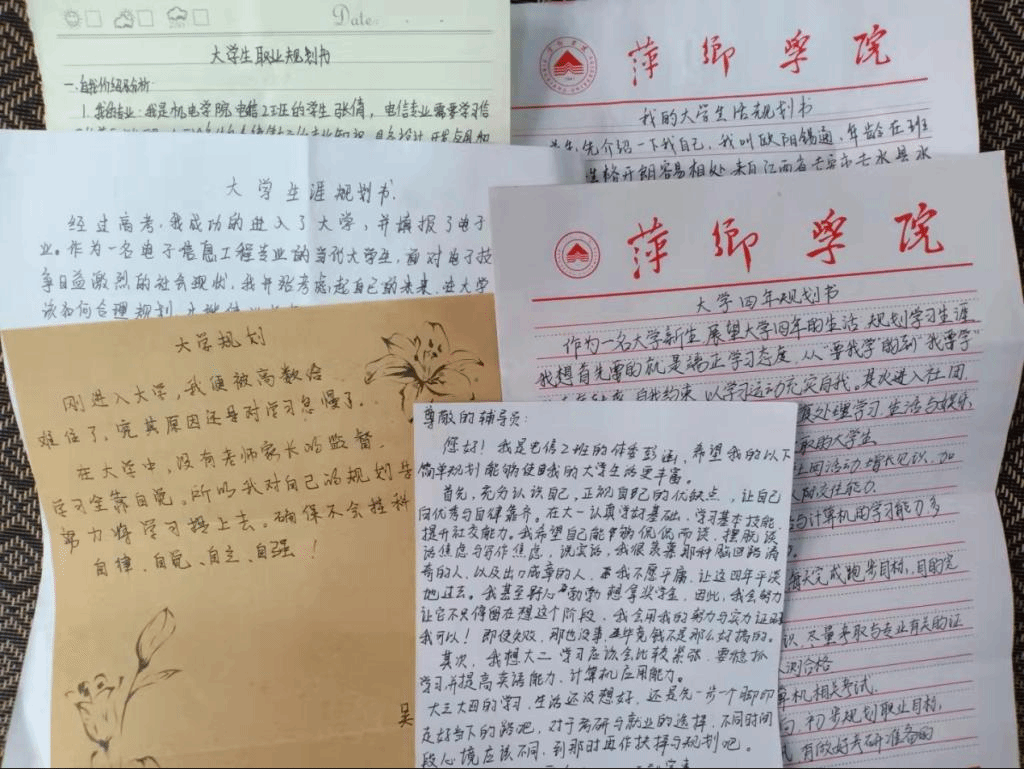 Date:
大学生职业规划书
一.自我介绍及分析
1.我的专业:我是机电学院电信2班的学生张倩,电信专业需要学习信
萍乡学院
我的大学生活规划书
首先,先介绍一下我自己,我叫欧阳锡通,年龄在班
性格开朗容易相处,来自江西省吉安市吉水县水
大学生涯规划书
经过高考,我成功的进入了大学,并填报了电子
业。作为一名电子信息工程专业的当代大学生,面对电子技
争日益激烈的社会现状,我开始考虑起自己的未来,在大学
该如何合理规划
萍乡学院
大学四年规划书
作为一名大学新生,展望大学四年的生活,规划学习生涯
我想首先要的就是端正学习态度,从"要我学"到"我要学"
自我约束,以学习运动充实自我。其次进入社团
处理学习、生活与娱乐
取的大学生
上网活动,增长见识,加
人际交往能力
与计算机的学习能力,多
每天完成跑步目标,目的完
识,尽量来取与专业有关的证
测合格
算机相关考试
初步规划职业目标,
有做好考研准备的
大学规划
刚进入大学,我便被高数给
难住了,究其原因还是对学习怠慢了.
在大学中,没有老师家长的监督.
学习全靠自觉。所以我对自己的规划是
努力将学习搞上去。确保不会挂科
自律、自觉、自立、自强!
吴
尊敬的辅导员:
您好!我是电信2班的体委彭,希望我的以下
简单规划能够使我的大学生活更丰富。
首先,充分认识自己,正视自己的优缺点,让自己
向优秀与自律靠齐。在大一认真学好基础、学习基本技能、
提升社交能力。我希望自己能够侃侃而谈,摆脱谈
话焦虑与写作焦虑,说实话,我很羡慕那种脑回路清
奇的人,以及出口成章的人,我不愿平庸,让这四年平淡
地过去。我甚至野心勃勃想拿奖学金,因此,我会努力
让它不只停留在想这个阶段,我会用我的努力与实力证明
我可以!即使失败,那也没事,毕竟钱不是那么好搞的。
其次,我想大二学习应该会比较紧张,要稳抓
学习并提高英语能力、计算机应用能力。
大三大四的学习、生活还没想好,还是先一步一个脚印
走好当下的路吧,对于考研与就业的选择,不同时间
段心境应该不同,到那时再作抉择与规划吧。